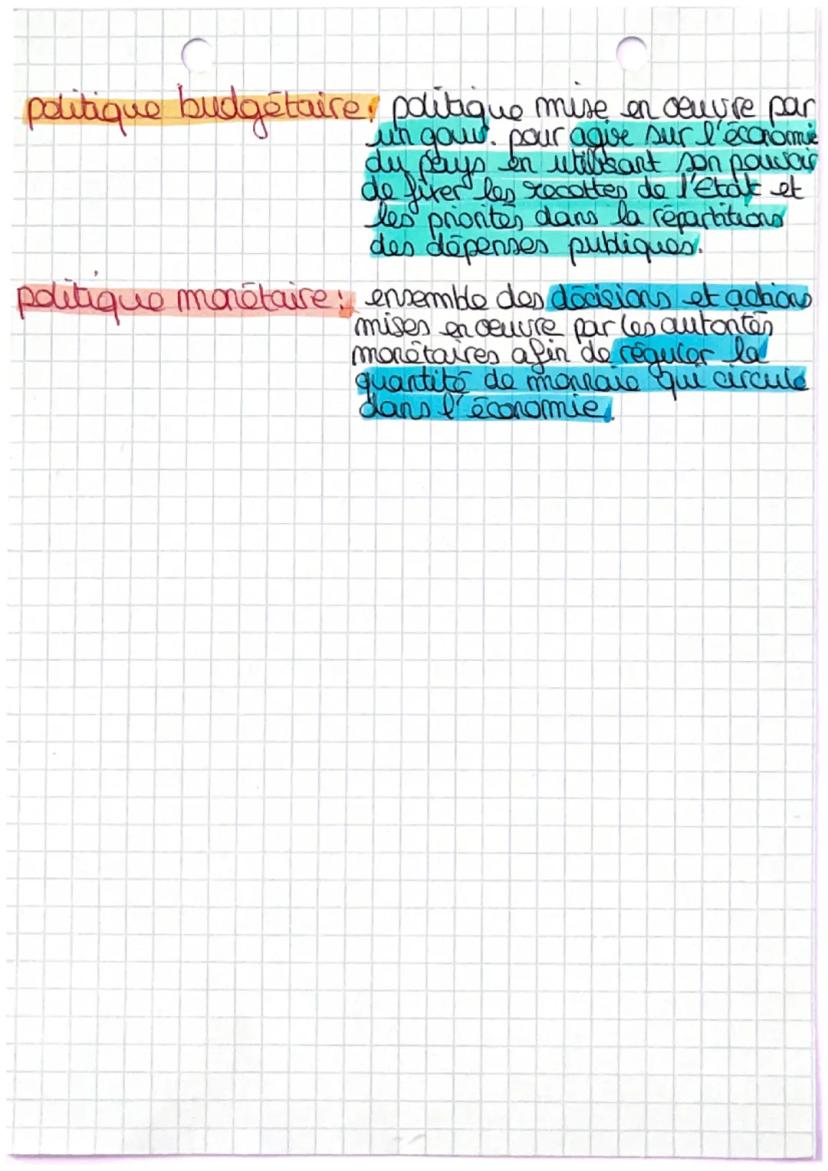 politique budgétaire: politique mise en œuvre par
un gouv. pour agir sur l'économie
du pays en utilisant son pouvoir
de fixer les recettes de l'Etat et
les priorités dans la répartitions
des dépenses publiques.
politique monétaire: ensemble des décisions et actions
mises en œuvre par les autorités
monétaires afin de réguler la
quantité de monnaie qui circule
dans l'économie.